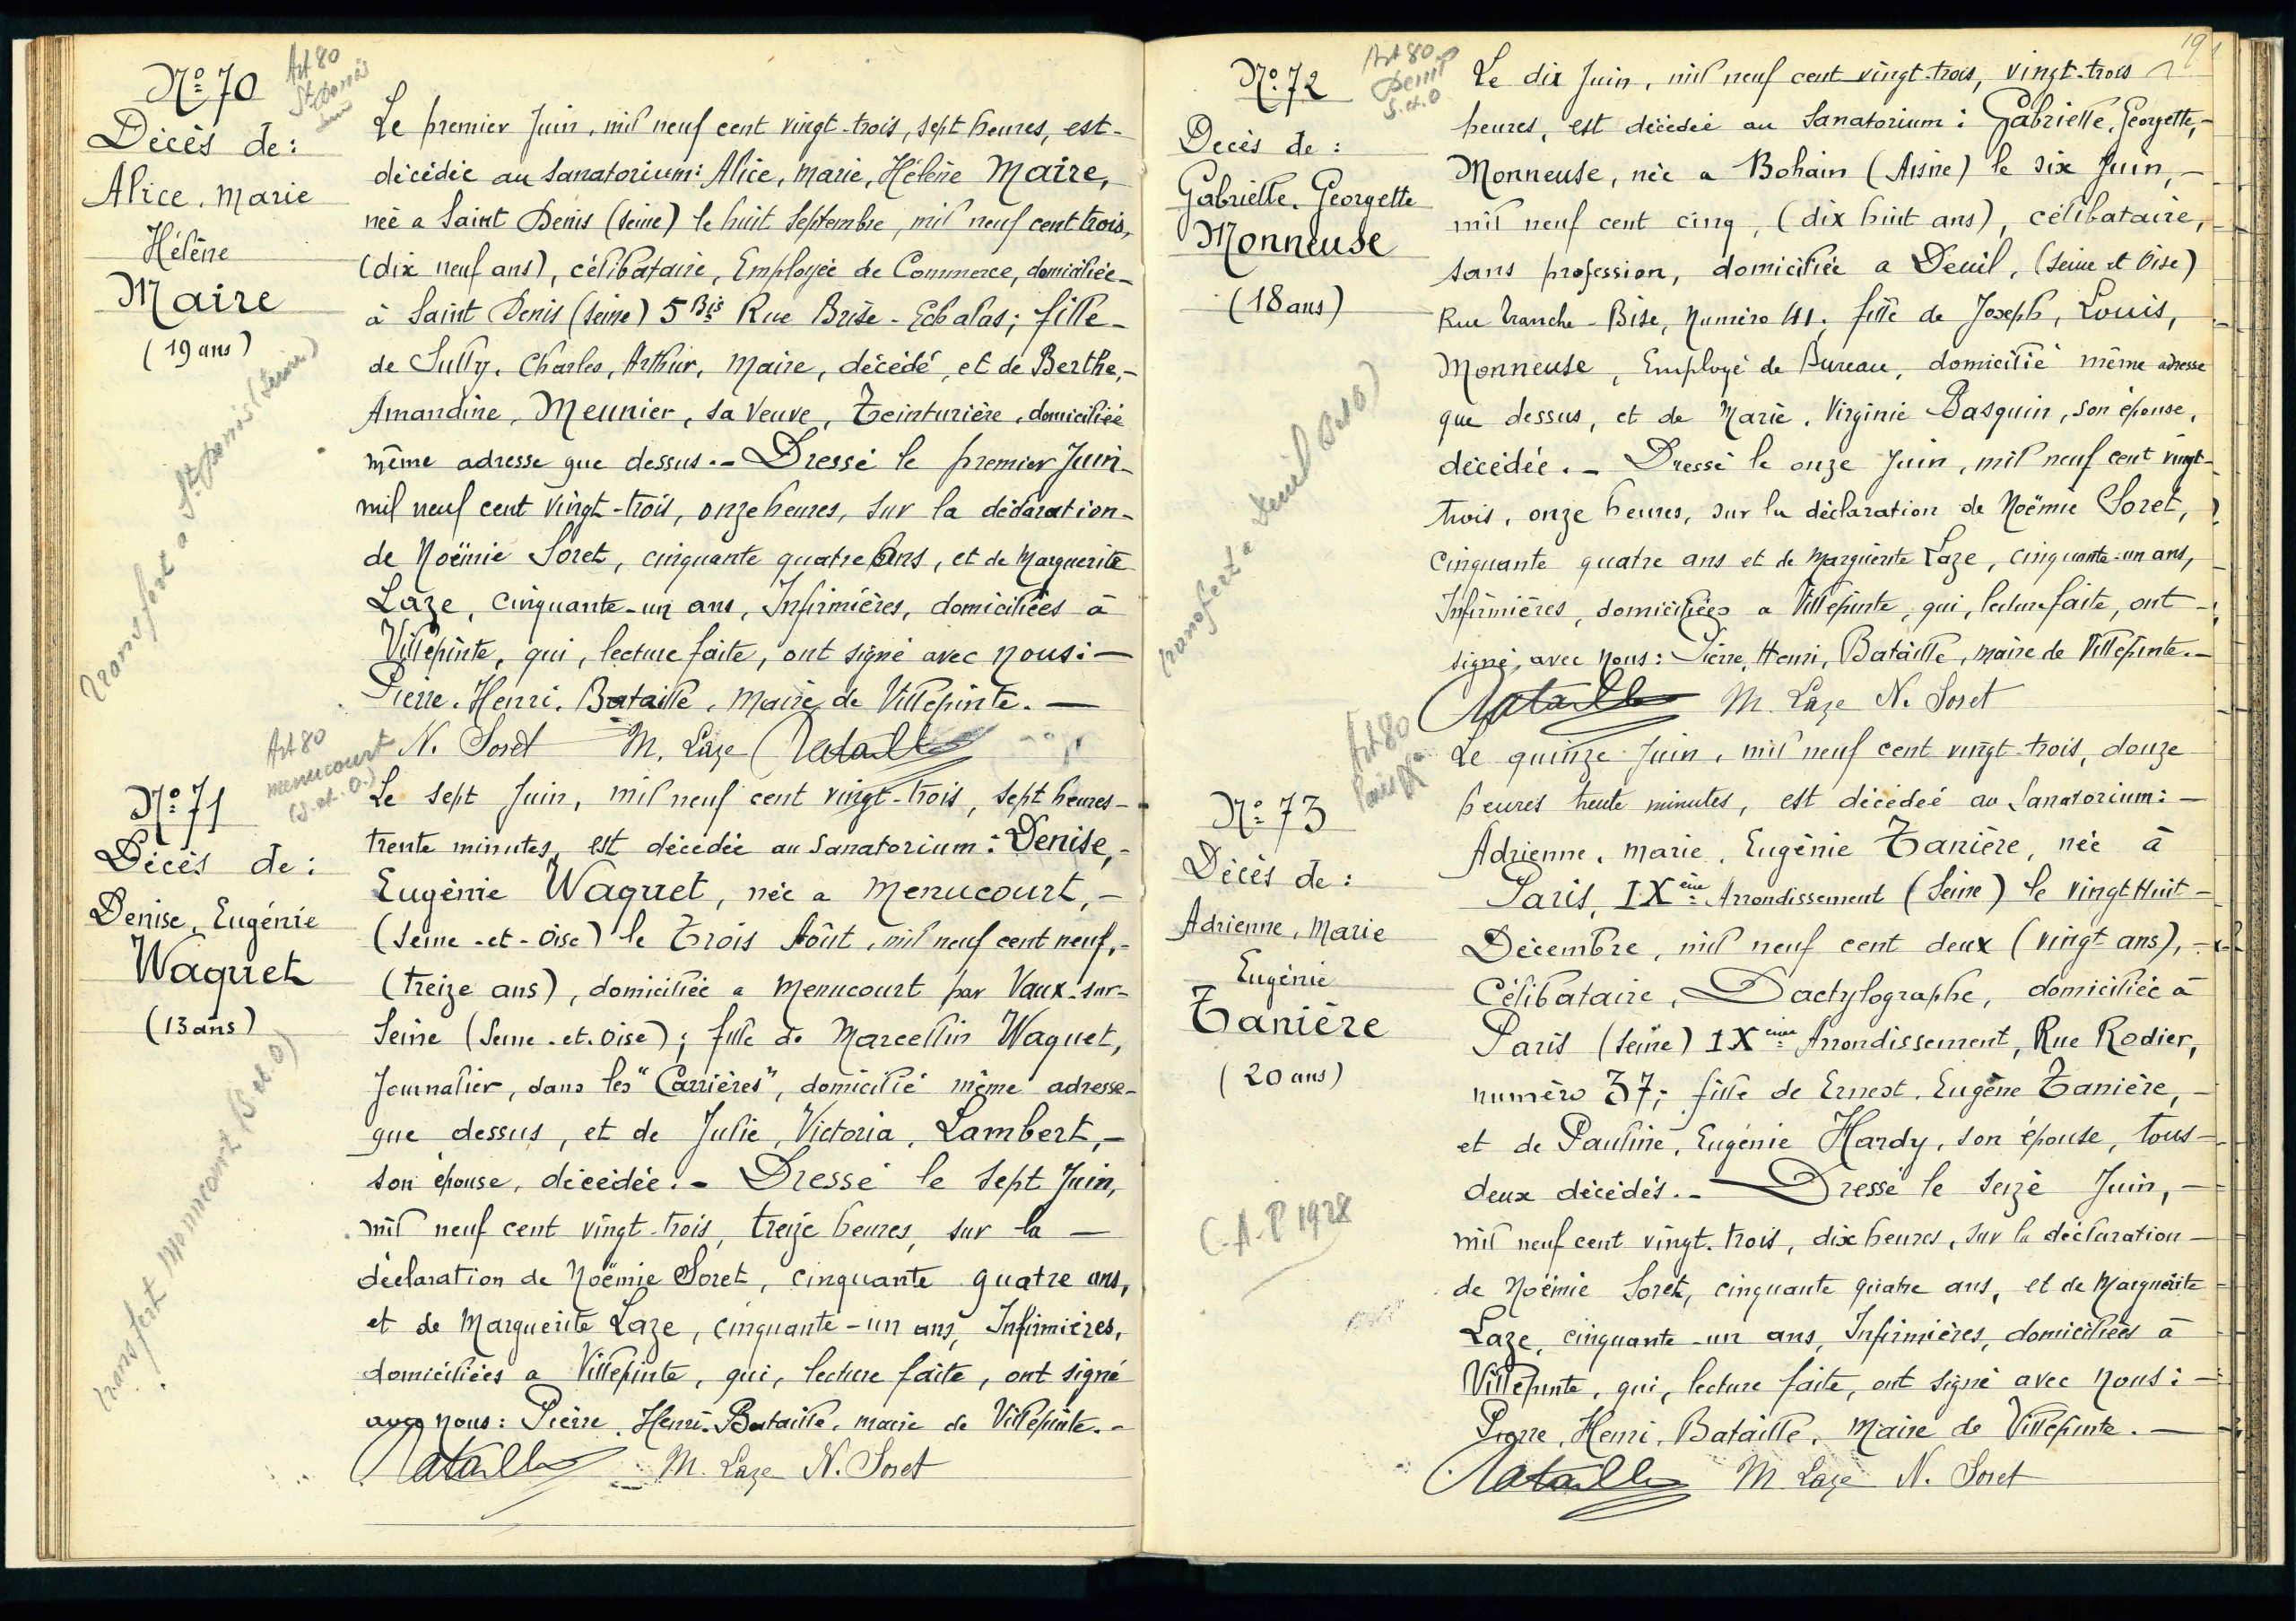 N° 70
Art 80
St Denis
Décès de:
Alice. Marie
Hélène
Maire
(19 ans)
transfert a St Denis (Seine)
Le premier Juin, mil neuf cent vingt-trois, sept heures, est-
décédée au Sanatorium: Alice, Marie, Hélène Maire,
née a Saint Denis (Seine) le huit Septembre, mil neuf cent trois,
(dix neuf ans), célibataire, Employée de Commerce, domiciliée-
à Saint Denis (Seine) 5 Bis Rue Brise-Echalas; fille-
de Sully, Charles, Arthur, Maire, décédé, et de Berthe,-
Amandine, Meunier, sa Veuve, Teinturière, domiciliée
même adresse que dessus.- Dressé le premier Juin-
mil neuf cent vingt-trois, onze heures, sur la déclaration-
de Noëmie Soret, cinquante quatre ans, et de Marguerite
Laze, cinquante-un ans, Infirmières, domiciliées à
Villepinte, qui, lecture faite, ont signé avec nous:-
Pierre. Henri. Bataille, Maire de Villepinte.-
N. Soret M. Laze Bataille
N° 71
Art 80
menucourt
(S.-et-O.)
Décès de:
Denise, Eugénie
Waquet
(13 ans)
transfert Menucourt (S et O)
Le sept Juin, mil neuf cent vingt-trois, sept heures-
trente minutes, est décédée au Sanatorium: Denise,-
Eugénie Waquet, née a Menucourt,-
(Seine-et-Oise) le Trois Août, mil neuf cent neuf,-
(treize ans), domiciliée a Menucourt par Vaux-sur-
Seine (Seine-et-Oise); fille de Marcellin Waquet,
Journalier, dans les "Carrières", domicilié même adresse-
que dessus, et de Julie, Victoria, Lambert,-
son épouse, décédée.- Dressé le sept Juin,
mil neuf cent vingt-trois, treize heures, sur la-
déclaration de Noëmie Soret, cinquante quatre ans,
et de Marguerite Laze, cinquante-un ans, Infirmières,
domiciliées a Villepinte, qui, lecture faite, ont signé
avec nous: Pierre. Henri. Bataille, maire de Villepinte.-
Bataille M. Laze N. Soret
191
N° 72
Art 80
Deuil
S.et.O
Decès de:
Gabrielle. Georgette
Monneuse
(18 ans)
transfert a Deuil (S et O)
Le dix Juin, mil neuf cent vingt-trois, vingt-trois
heures, est décédée au Sanatorium: Gabrielle, Georgette,-
Monneuse, née a Bohain (Aisne) le six Juin,-
mil neuf cent cinq, (dix huit ans), célibataire,
sans profession, domiciliée a Deuil, (Seine et Oise)
Rue Tranche-Bise, Numéro 41; fille de Joseph, Louis,
Monneuse, Employé de Bureau, domicilié même adresse
que dessus, et de Marie, Virginie Basquin, son épouse,
décédée.- Dressé le onze Juin, mil neuf cent vingt-
trois, onze heures, sur la déclaration de Noëmie Soret,
cinquante quatre ans et de Marguerite Laze, cinquante-un ans,
Infirmières, domiciliées a Villepinte, qui, lecture faite, ont-
signé, avec nous: Pierre, Henri, Bataille, maire de Villepinte.-
Bataille M. Laze N. Soret
N° 73
Art 80
Paris 9e
Décès de:
Adrienne, Marie
Eugénie
Tanière
(20 ans)
C.A.P 1928
Le quinze Juin, mil neuf cent vingt-trois, douze
heures trente minutes, est décédée au Sanatorium:-
Adrienne, Marie, Eugénie Tanière, née à
Paris, IXème Arrondissement (Seine) le vingt Huit-
Décembre, mil neuf cent deux (vingt ans),-
Célibataire, Dactylographe, domiciliée à
Paris (Seine) IXème Arrondissement, Rue Rodier,
numéro 37; fille de Ernest, Eugène Tanière,-
et de Pauline, Eugénie Hardy, son épouse, tous-
deux décédés.- Dressé le seize Juin,-
mil neuf cent vingt-trois, dix heures, sur la déclaration-
de Noëmie Soret, cinquante quatre ans, et de Marguerite
Laze, cinquante-un ans, Infirmières, domiciliées à
Villepinte, qui, lecture faite, ont signé avec nous:-
Pierre, Henri, Bataille, Maire de Villepinte.-
Bataille M. Laze N. Soret